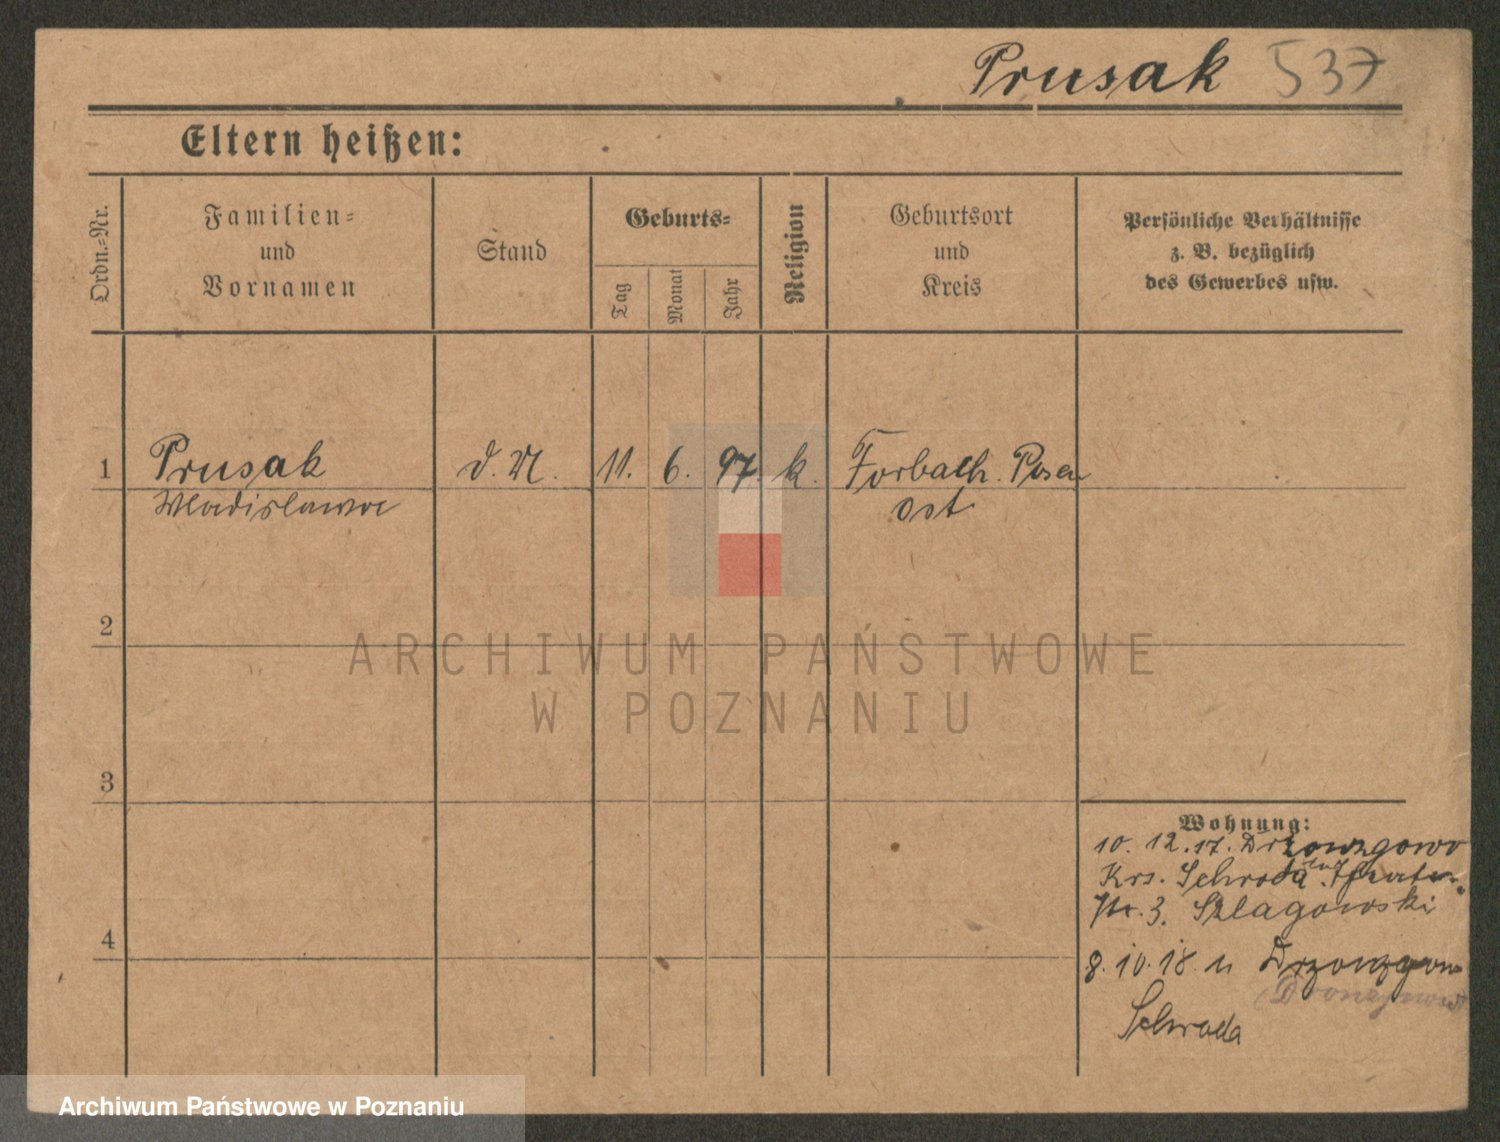 Prusak 537
Eltern heißen:
Ordn.=Nr.
Familien=
und
Vornamen
Stand
Geburts=
Tag
Monat
Jahr
Religion
Geburtsort
und
Kreis
Persönliche Verhältnisse
z. B. bezüglich
des Gewerbes usw.
1 Prusak d. M. 11. 6. 97. k. Forbach. Posen
Wladislawa Ost
2
3
4
Wohnung:
10. 12. 17. Drzonzgowo
Krs. Schroda
Str. 3. Szlagowski
8. 10. 18. n Drzonzgow
Schroda
ARCHIWUM PAŃSTWOWE
W POZNANIU
Archiwum Państwowe w Poznaniu